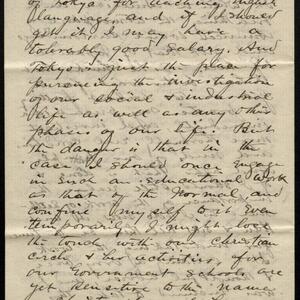 of Tokyo for teaching English
language, and if I should
get it, I may have a
tolerably good salary. And
Tokyo is just the place for
pursuing the investigation
of our social & industrial
life as well as any other
phases of our life. But
the danger is that in the
case I should once engage
in such an educational work
as that of the Normal, and
confine myself to it even
temporarily I might lose
the touch with our Christian
circle & her activities, for
our Government schools are
yet sensitive to the name